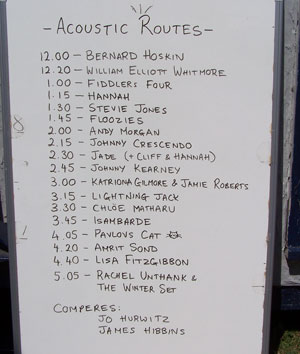 - ACOUSTIC ROUTES -
12.00 - BERNARD HOSKIN
12.20 - WILLIAM ELLIOTT WHITMORE
1.00 - FIDDLERS FOUR
1.15 - HANNAH
1.30 - STEVIE JONES
1.45 - FLOOZIES
2.00 - ANDY MORGAN
2.15 - JOHNNY CRESCENDO
2.30 - JADE (+ CLIFF & HANNAH)
2.45 - JOHNNY KEARNEY
3.00 - KATRIONA GILMORE & JAMIE ROBERTS
3.15 - LIGHTNING JACK
3.30 - CHLÖE MATHARU
3.45 - ISAMBARDE
4.05 - PAVLOVS CAT
4.20 - AMRIT SOND
4.40 - LISA FITZGIBBON
5.05 - RACHEL UNTHANK &
THE WINTER SET
COMPERES:
JO HURWITZ
JAMES HIBBINS